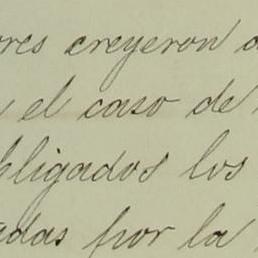 ores creyeron
el caso de
bligados los
adas por la